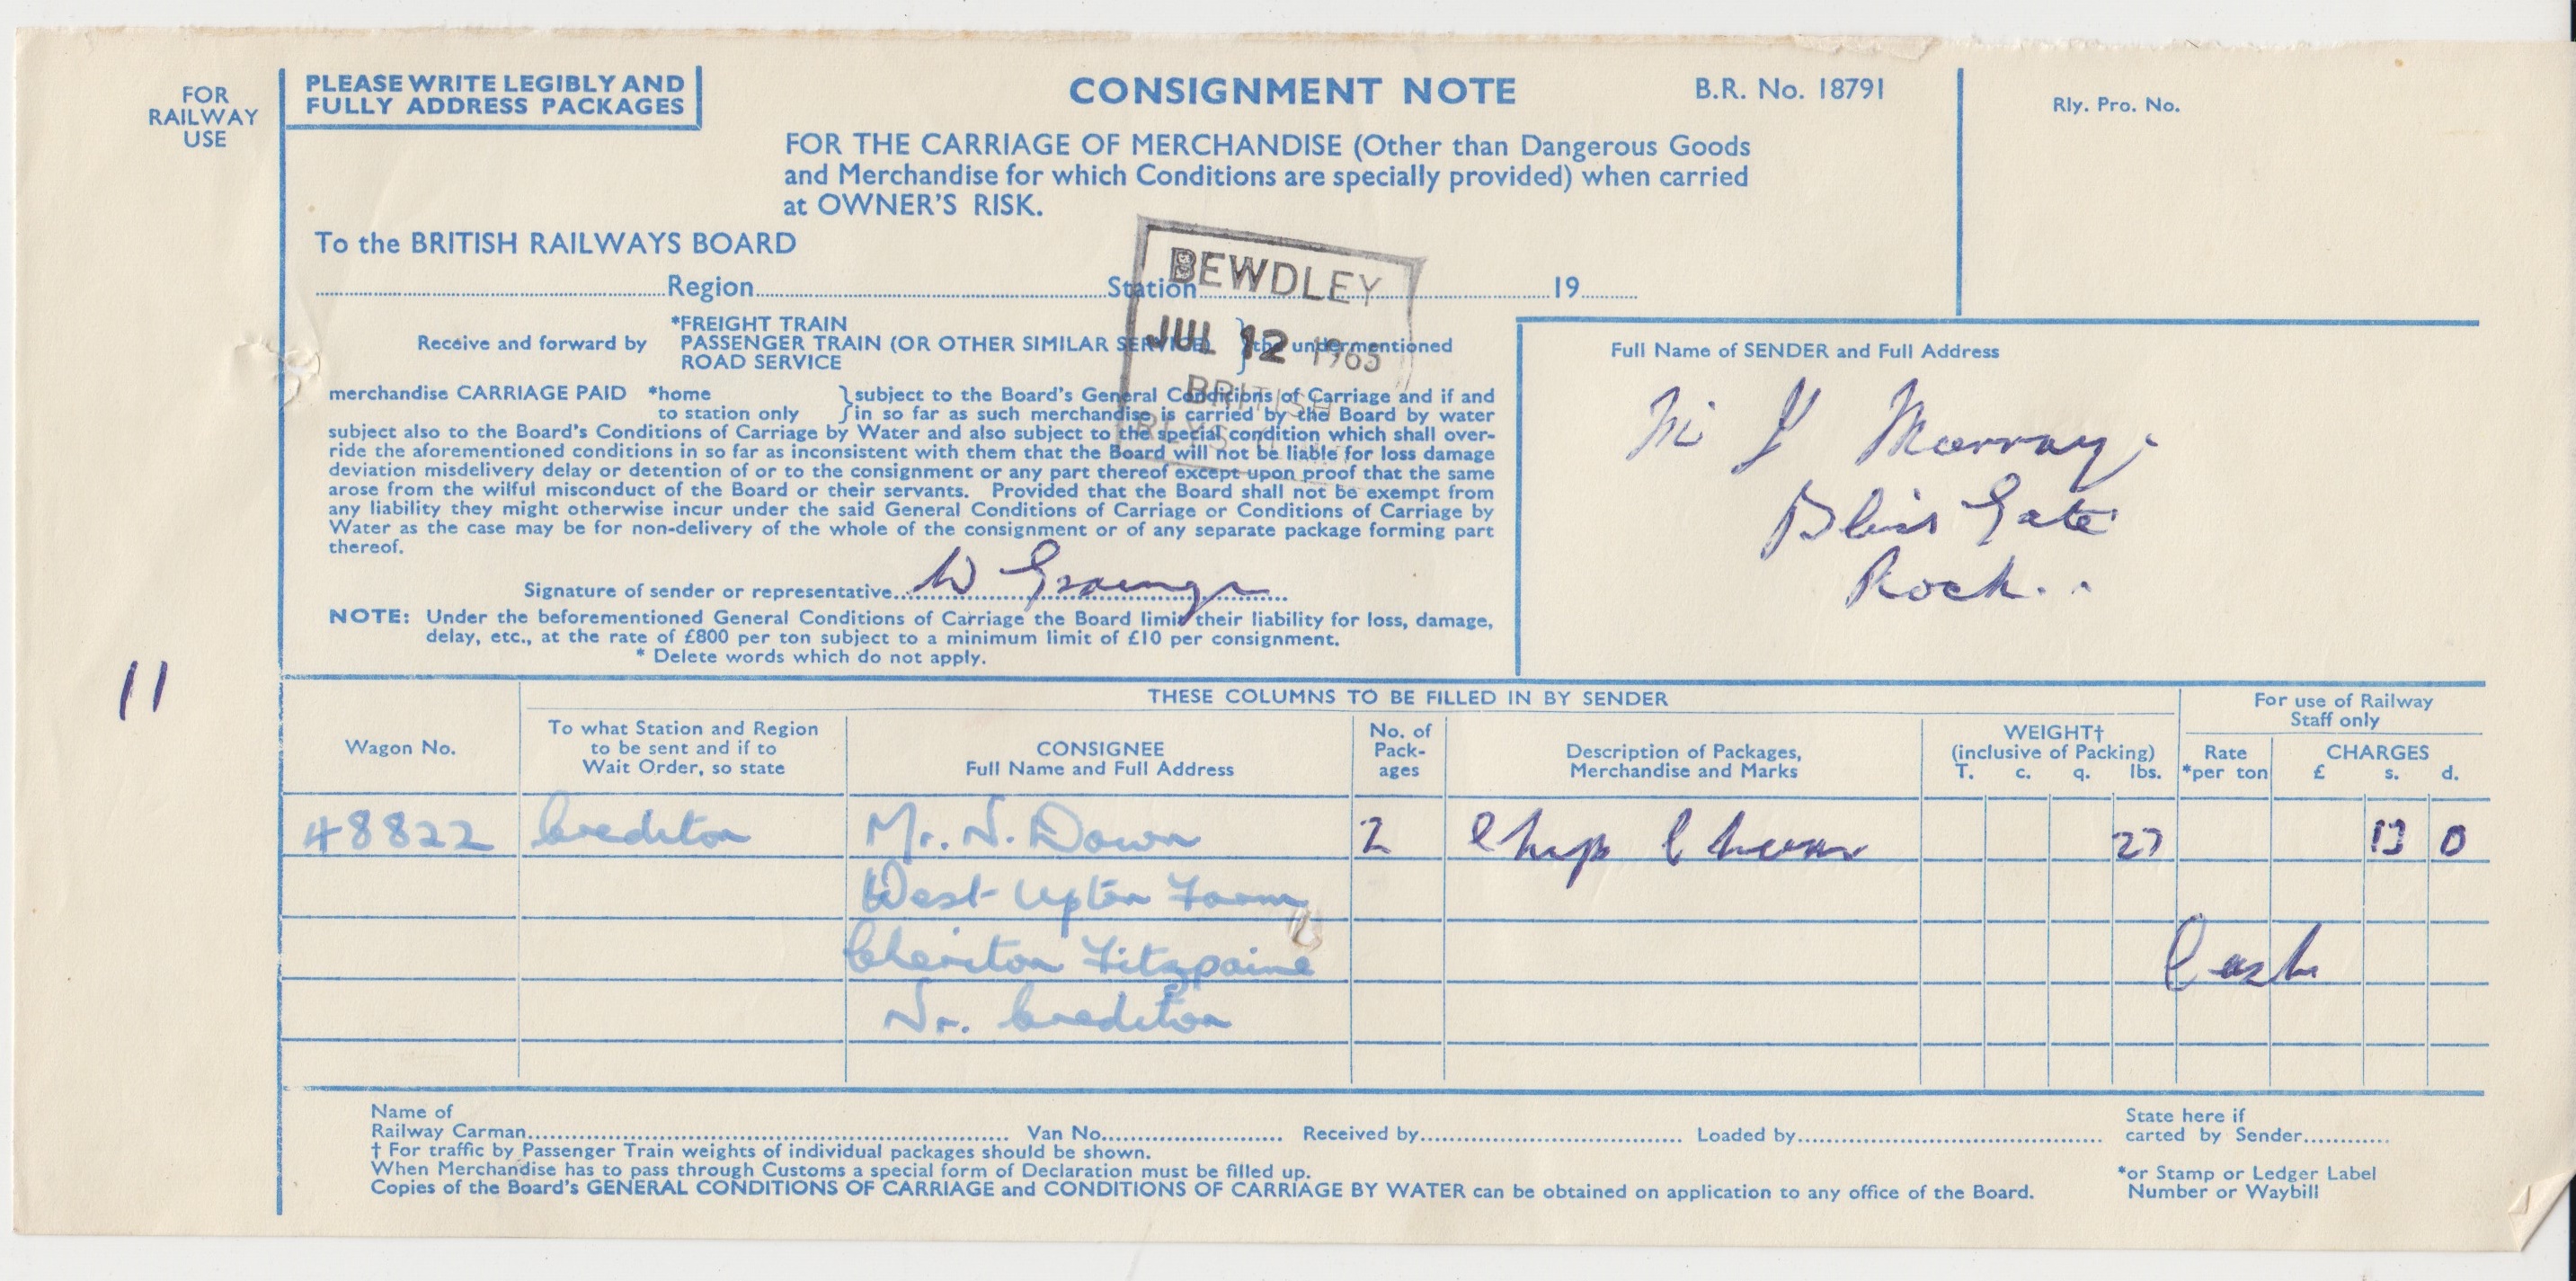 FOR
RAILWAY
USE
PLEASE WRITE LEGIBLY AND
FULLY ADDRESS PACKAGES
CONSIGNMENT NOTE
B.R. No. 18791
Rly. Pro. No.
FOR THE CARRIAGE OF MERCHANDISE (Other than Dangerous Goods
and Merchandise for which Conditions are specially provided) when carried
at OWNER'S RISK.
To the BRITISH RAILWAYS BOARD
Region Station 19
BEWDLEY
JUL 12 1965
BRITISH
RLYS
Receive and forward by
*FREIGHT TRAIN
PASSENGER TRAIN (OR OTHER SIMILAR SERVICE) } the undermentioned
ROAD SERVICE
merchandise CARRIAGE PAID *home } subject to the Board's General Conditions of Carriage and if and
to station only } in so far as such merchandise is carried by the Board by water
subject also to the Board's Conditions of Carriage by Water and also subject to the special condition which shall over-
ride the aforementioned conditions in so far as inconsistent with them that the Board will not be liable for loss damage
deviation misdelivery delay or detention of or to the consignment or any part thereof except upon proof that the same
arose from the wilful misconduct of the Board or their servants. Provided that the Board shall not be exempt from
any liability they might otherwise incur under the said General Conditions of Carriage or Conditions of Carriage by
Water as the case may be for non-delivery of the whole of the consignment or of any separate package forming part
thereof.
Signature of sender or representative W
NOTE: Under the beforementioned General Conditions of Carriage the Board limit their liability for loss, damage,
delay, etc., at the rate of £800 per ton subject to a minimum limit of £10 per consignment.
* Delete words which do not apply.
Full Name of SENDER and Full Address
Murray
Bliss Gate
Rock
11
THESE COLUMNS TO BE FILLED IN BY SENDER
For use of Railway
Staff only
Wagon No.
To what Station and Region
to be sent and if to
Wait Order, so state
CONSIGNEE
Full Name and Full Address
No. of
Pack-
ages
Description of Packages,
Merchandise and Marks
WEIGHT†
(inclusive of Packing)
T. c. q. lbs.
Rate
*per ton
CHARGES
£ s. d.
48822 Crediton Mr. N. Down 2 Chip 27 13 0
West Upton Farm
Cheriton Fitzpaine
Cash
Nr. Crediton
Name of
Railway Carman Van No. Received by Loaded by
State here if
carted by Sender
† For traffic by Passenger Train weights of individual packages should be shown.
When Merchandise has to pass through Customs a special form of Declaration must be filled up.
Copies of the Board's GENERAL CONDITIONS OF CARRIAGE and CONDITIONS OF CARRIAGE BY WATER can be obtained on application to any office of the Board.
*or Stamp or Ledger Label
Number or Waybill